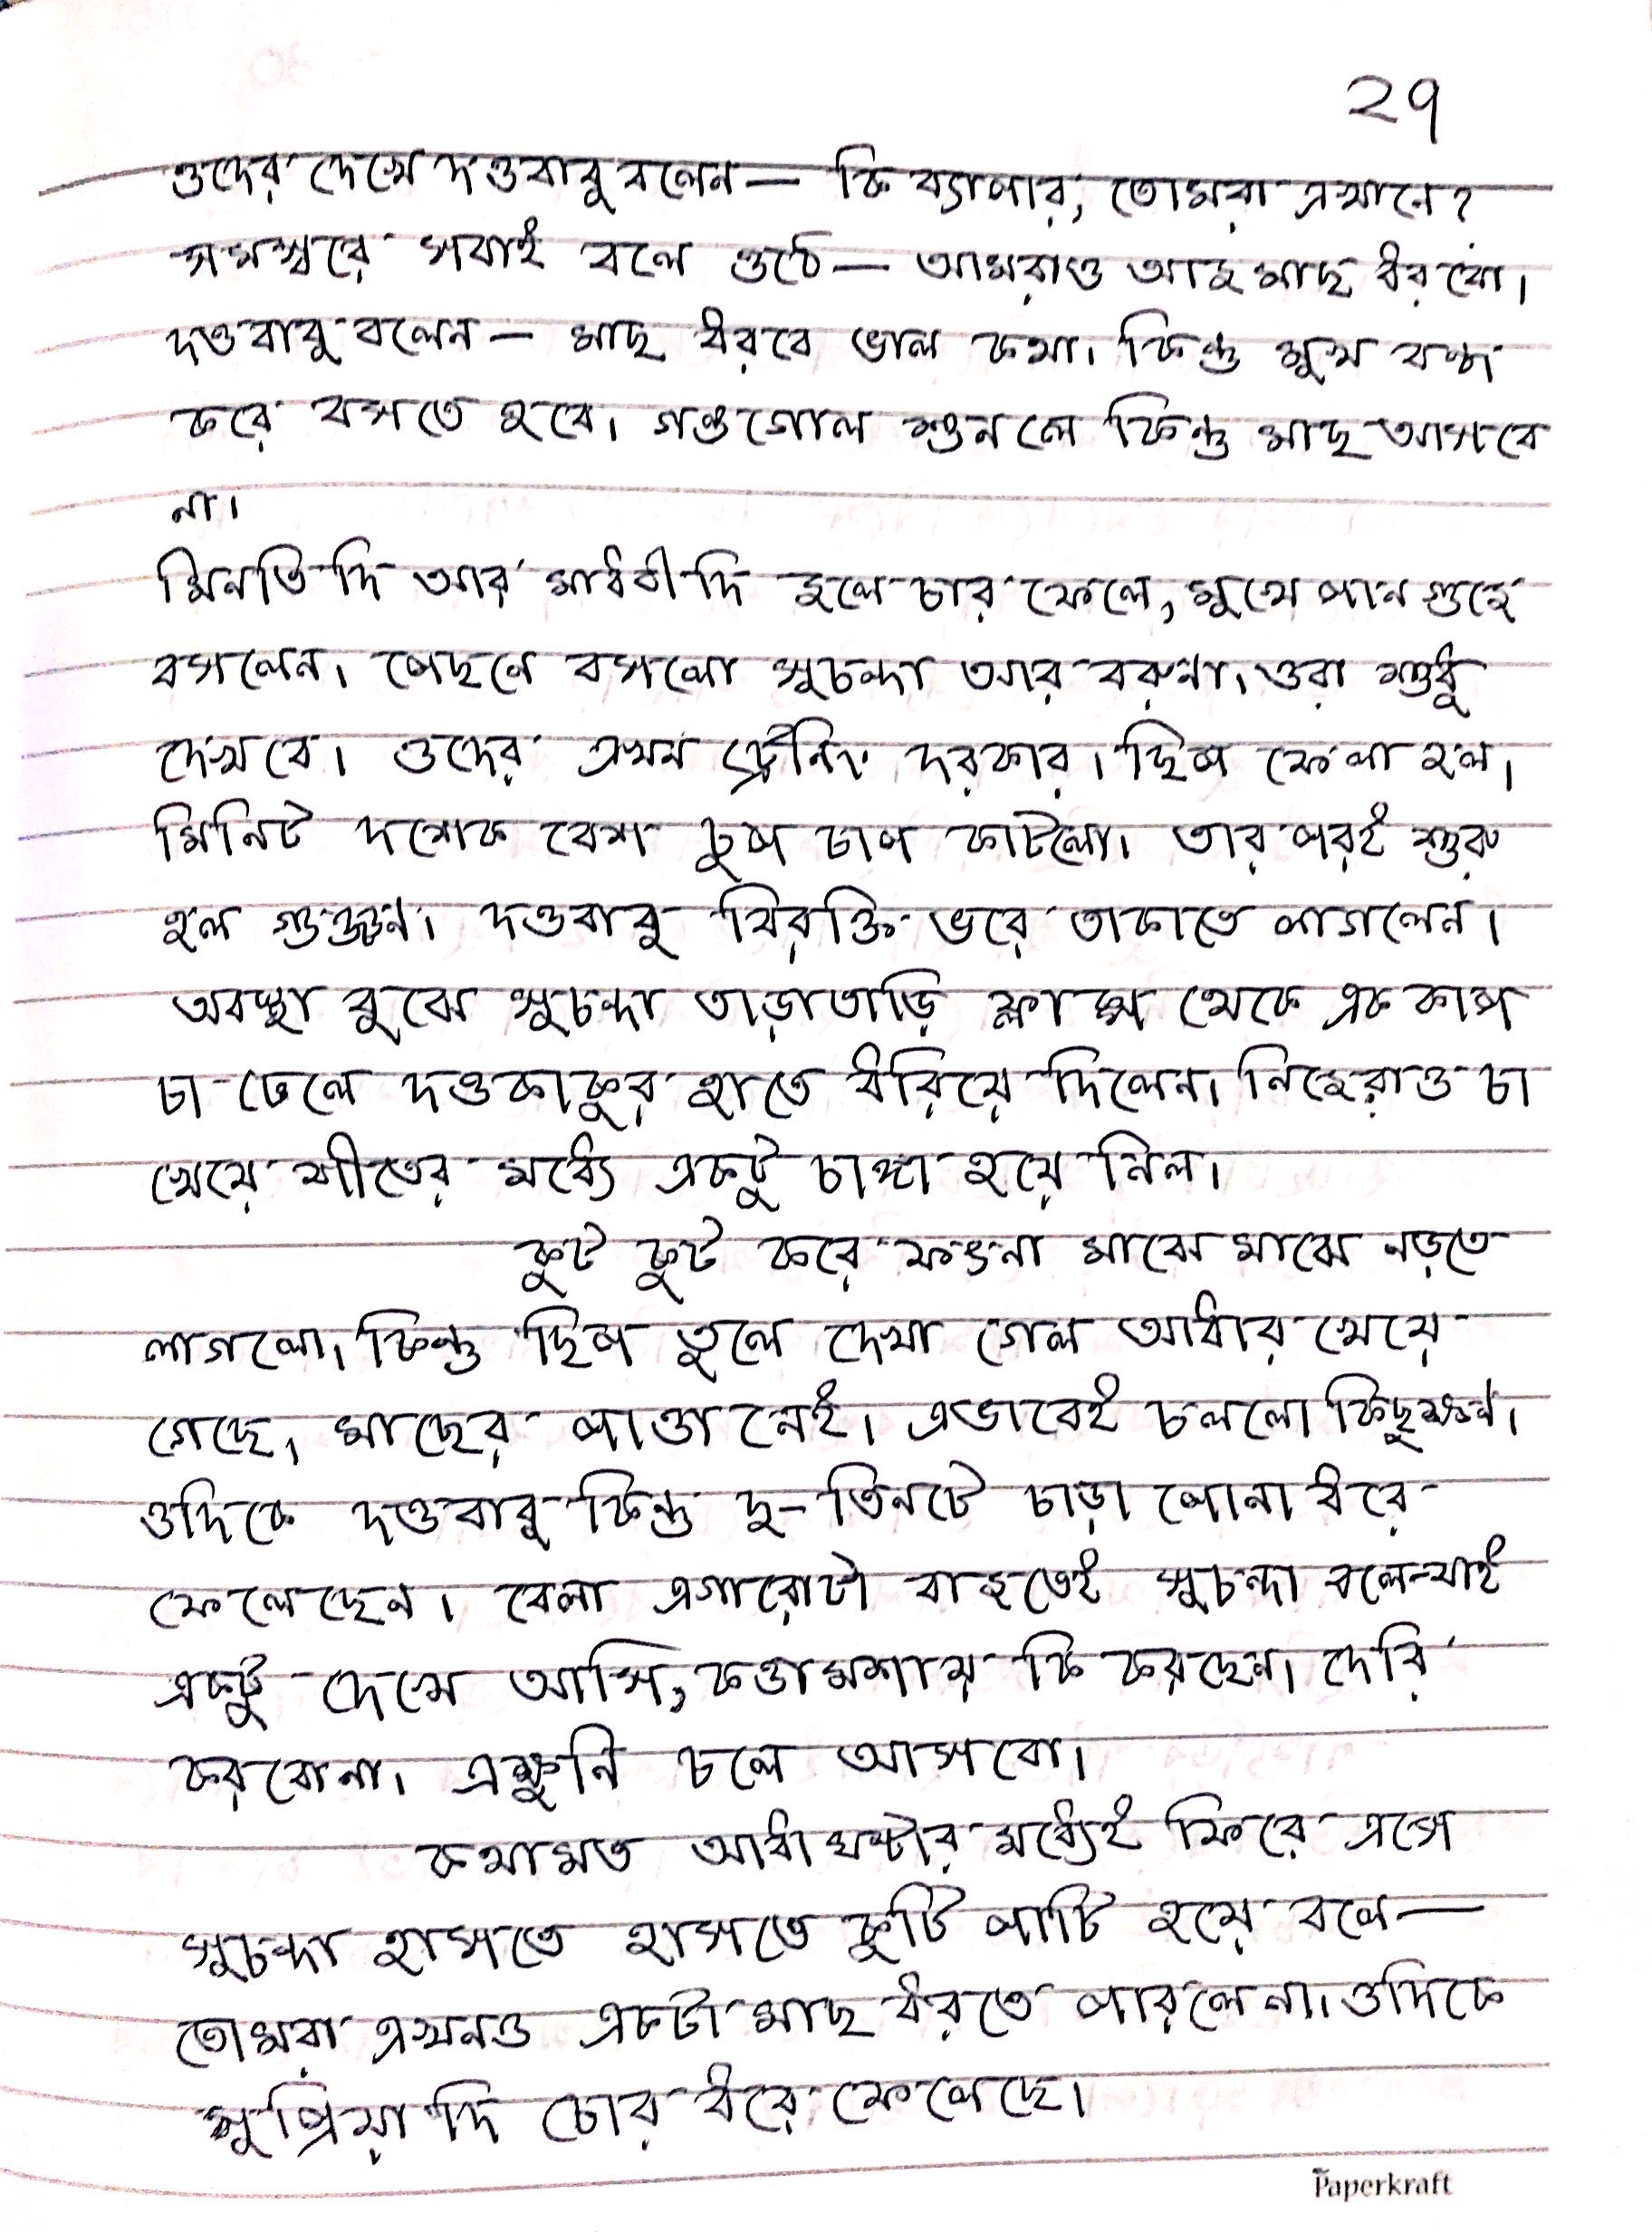 ২৭
ওদের দেখে দত্তবাবু বলেন— কি ব্যাপার, তোমরা এখানে?
সমস্বরে সবাই বলে ওঠে— আমরাও আজ মাছ ধরবো।
দত্তবাবু বলেন— মাছ ধরবে ভাল কথা। কিন্তু মুখ বন্ধ
করে বসতে হবে। গণ্ডগোল শুনলে কিন্তু মাছ আসবে
না।
মিনতি দি আর মাধবী দি জলে চার ফেলে, মুখে পান গুজে
বসলেন। পেছনে বসলো সুচন্দা আর বরুনা। ওরা শুধু
দেখবে। ওদের এখন ট্রেনিং দরকার। ছিপ ফেলা হল।
মিনিট দশেক বেশ চুপ চাপ কাটলো। তার পরই শুরু
হল গুঞ্জন। দত্তবাবু বিরক্তি ভরে তাকাতে লাগলেন।
অবস্থা বুঝে সুচন্দা তাড়াতাড়ি ফ্লাক্স থেকে এক কাপ
চা ঢেলে দত্তকাকুর হাতে ধরিয়ে দিলেন। নিজেরাও চা
খেয়ে শীতের মধ্যে একটু চাঙ্গা হয়ে নিল।
ফুট ফুট করে ফৎনা মাঝে মাঝে নড়তে
লাগলো। কিন্তু ছিপ তুলে দেখা গেল আধার খেয়ে
গেছে, মাছের পাত্তা নেই। এভাবেই চললো কিছুক্ষন।
ওদিকে দত্তবাবু কিন্তু দু-তিনটে চাড়া পোনা ধরে
ফেলেছেন। বেলা এগারোটা বাজতেই সুচন্দা বলে-যাই
একটু দেখে আসি, কত্তামশায় কি করছেন। দেরি
করবোনা। এক্ষুনি চলে আসবো।
কথামত আধা ঘন্টার মধ্যেই ফিরে এসে
সুচন্দা হাসতে হাসতে কুটি পাটি হয়ে বলে—
তোমরা এখনও একটা মাছ ধরতে পারলে না। ওদিকে
সুপ্রিয়া দি চোর ধরে ফেলেছে।
Paperkraft